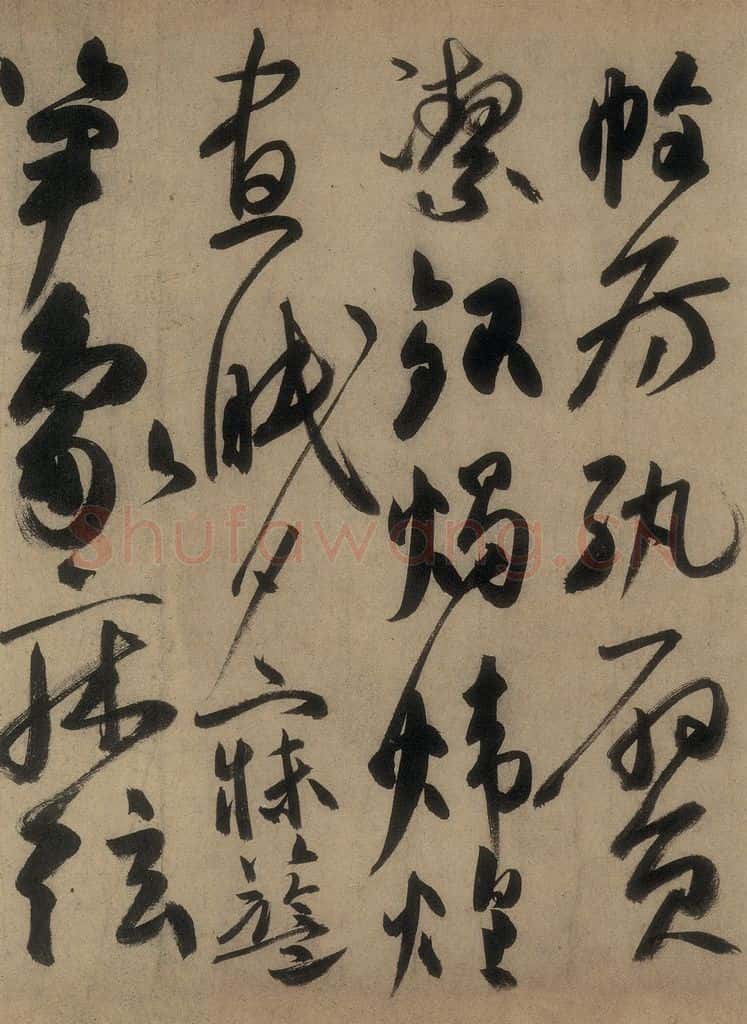 帷房紈扇員
潔銀燭煒煌
晝眠夕寐藍
笋象床弦
Shufawang.CN